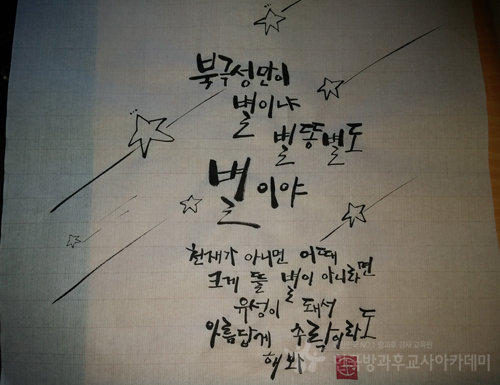 북극성만이
별이냐
별똥별도
별이야
천재가 아니면 어때
크게 뜰 별이 아니라면
유성이 돼서
아름답게 수락이라도
해봐
한국방과후교사아카데미